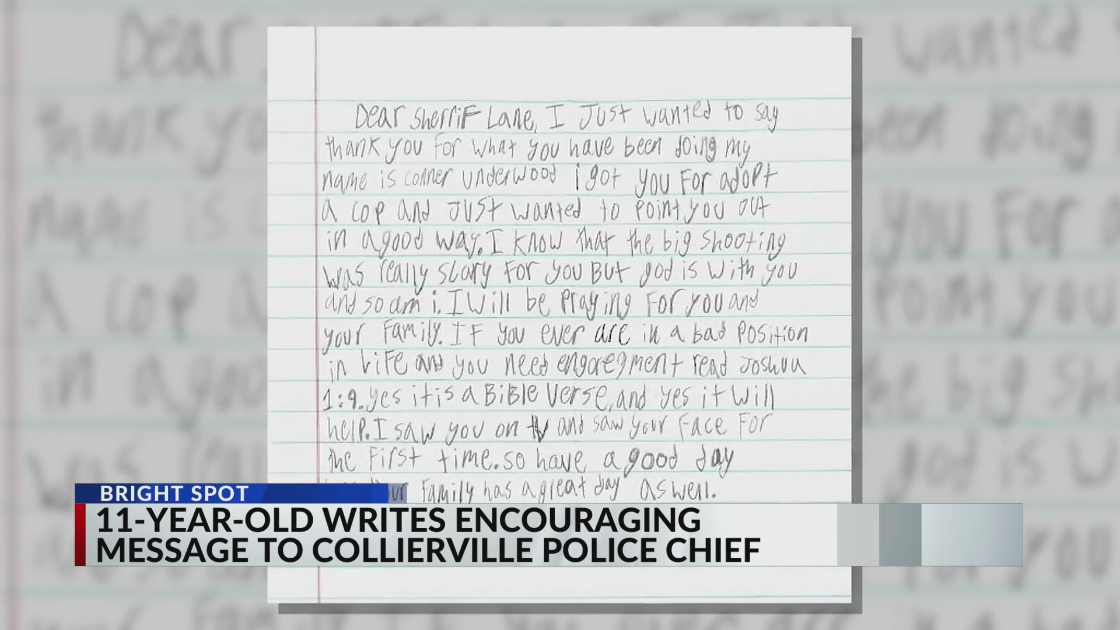 Dear Sherrif Lane, I Just wanted to say
thank you for what you have been doing my
name is conner underwood i got you For adopt
a cop and Just wanted to Point you out
in a good way. I know that the big shooting
was really scary for you But god is with you
and so am i. I Will be Praying For you and
your Family. IF you ever are in a bad Position
in Life and you need engoregment read Joshua
1:9. yes it is a Bible Verse, and yes it Will
help. I saw you on tv and saw your Face For
the First time. so have a good day
Family has a great day as well.
BRIGHT SPOT
11-YEAR-OLD WRITES ENCOURAGING
MESSAGE TO COLLIERVILLE POLICE CHIEF